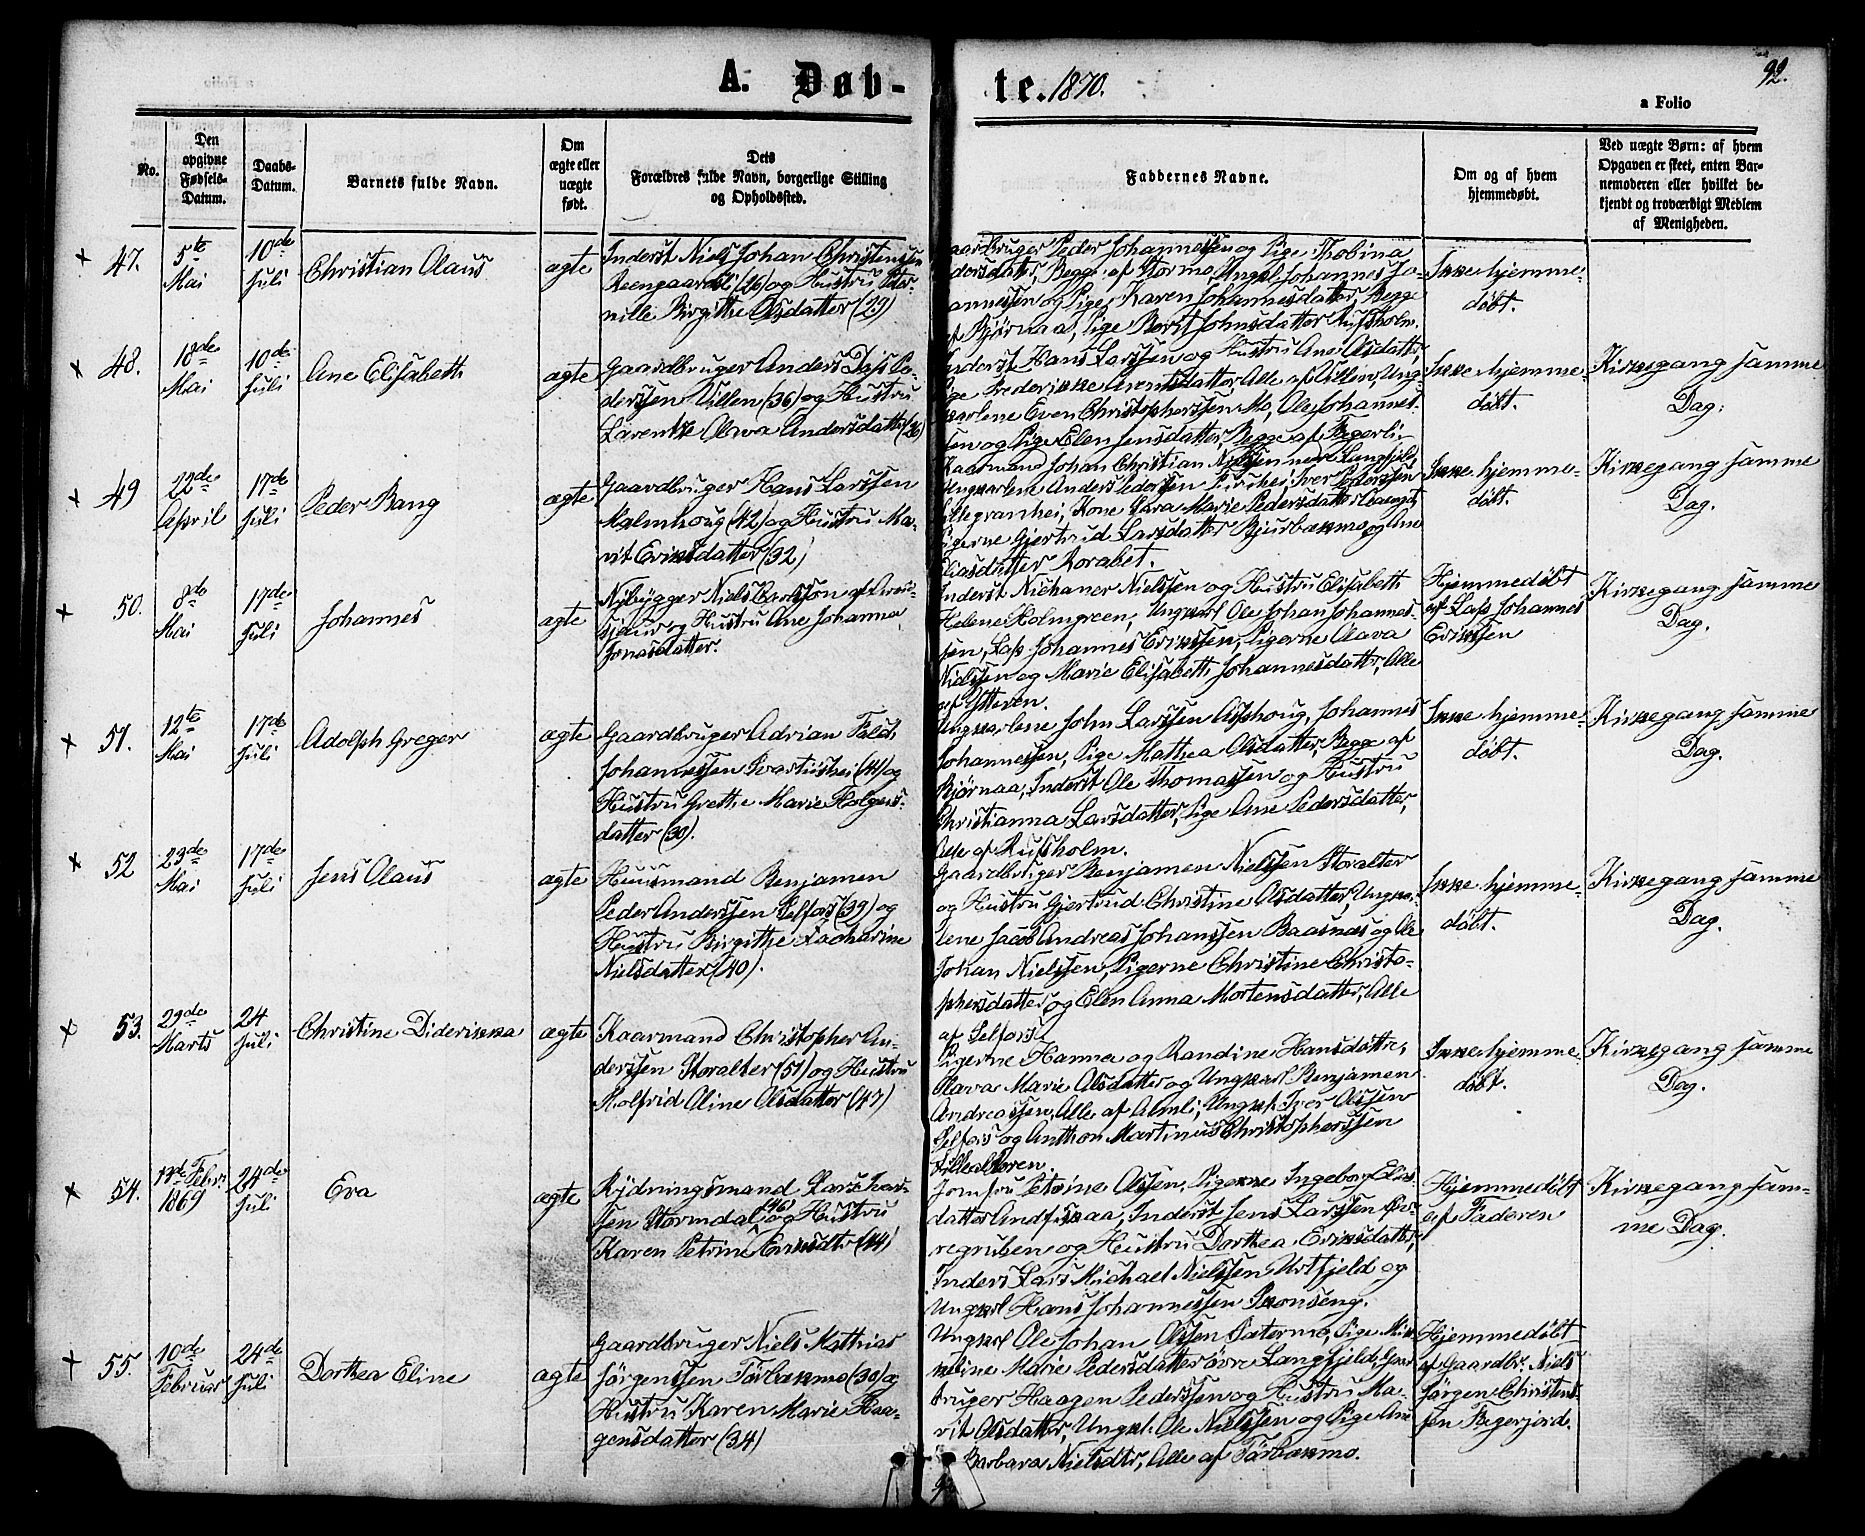 92.
A. Døb-
te. 1870.
a Folio
No.
Den opgivne Fødsels-Datum.
Daabs-Datum.
Barnets fulde Navn.
Om ægte eller uægte født.
Dets
Forældres fulde Navn, borgerlige Stilling
og Opholdssted.
Faddernes Navne.
Om og af hvem
hjemmedøbt.
Ved uægte Børn: af hvem
Opgaven er skeet, enten Bar-
nemoderen eller hvilket be-
kjendt og troværdigt Medlem
af Menigheden.
× 47.
5te
Mai
10de
Juli
Christian Olaus
ægte
Inderst Niels Johan Christenssen
(26) og Hustru Per-
nille Birgithe Olsdatter (29)
Gaardbruger Peder Johannessen og Pige Thobina
Begge af Stormo, Ungkl Johannes Jo-
annessen og Pige Karen Johannesdatter, Begge
af Bjørnaa, Pige Berit Johnsdatter Rufsholm.
Ikke hjemme-
døbt.
× 48.
18de
Mai
10de
Juli
Ane Elisabeth
ægte
Gaardbruger Anders Dass Pe-
derssen Villen (36) og Hustru
Larentze Olava Andersdatter (26)
Inderst Hans Larssen og Hustru Ane Olsdatter,
Pige Frederikke Arentsdatter, Alle af Villen, Ung-
karlene Even Christopherssen Mo, Ole Johannes-
sen og Pige Elen Jensdatter, Begge af Fagerli.
Ikke hjemme-
døbt.
Kirkegang samme
Dag.
× 49
22de
April
17de
Juli
Peder Bang
ægte
Gaardbruger Hans Larssen
Malmhoug (42) og Hustru Ma-
rit Eriksdatter (32)
Kaarmand Johan Christian Nielssen nedre Langfjeld,
Ungkarlene Anders Pederssen Iver Pederssen
Kone Sara Marie Pedersdatter
Pigerne Gjertrud Larsdatter Bjurbækmo og Ane
Eliasdatter Korabet.
Ikke hjemme-
døbt.
Kirkegang samme
Dag.
× 50.
8de
Mai
17de
Juli
Johannes
ægte
Nybygger Niels Carlsson af
og Hustru Ane Johanna
Jonasdatter.
Inderst Nichaner Nielssen og Hustru Elisabeth
Helene Holmgreen, Ungkarl Ole Johan Johannes-
sen, Lap Johannes Erikssen, Pigerne Olava
Nielssen og Marie Elisabeth Johannesdatter, Alle
af Ytteren.
Hjemmedøbt
af Lap Johannes
Erikssen
Kirkegang samme
Dag.
× 51.
12te
Mai
17de
Juli
Adolph Greger
ægte
Gaardbruger Adrian Falch
Johannessen (41) og
Hustru Grethe Marie Holgers-
datter (30).
Ungkarlene John Larssen Asphoug, Johannes
Johannessen, Pige Mathea Olsdatter, Begge af
Bjørnaa, Inderst Ole Thomassen og Hustru
Christianna Larsdatter, Pige Ane Pedersdatter,
Alle af Rufsholm.
Ikke hjemme-
døbt.
Kirkegang samme
Dag.
× 52
23de
Mai
17de
Juli
Jens Olaus
ægte
Huusmand Benjamen
Peder Anderssen Selfors (39) og
Hustru Birgithe Zacharine
Nielsdatter (40).
Gaardbruger Benjamen Nielssen Storalter
og Hustru Gjertrud Christine Olsdatter, Ungka-
lene Jacob Andreas Johanssen Baasnæs og Ole
Johan Nielssen, Pigerne Christine Christo-
phersdatter og Elen Anna Mortensdatter, Alle
af Selfors.
Ikke hjemme-
døbt.
Kirkegang samme
Dag.
× 53.
29de
Marts
24
Juli
Christine Diderikka
ægte
Kaarmand Christopher An-
derssen Storalter (51) og Hustru
Rolfrid Oline Olsdatter (47)
Pigerne Hanna og Randine Hansdøttre,
Olava Marie Olsdatter og Ungkarl Benjamen
Andreassen, Alle af Almli, Ungk. Iver Olssen
Selfors og Anthon Martinus Christopherssen
Lillealteren.
Ikke hjemme-
døbt.
Kirkegang samme
Dag.
× 54.
Febr.
1869
24de
Juli
Eva
ægte
Rydningsmand Lars Ivar-
sen Stormdal (46) og Hustru
Karen Petrine Eriksdtr (44)
Jomfru Petrine Olssen, Pigerne Ingeborg Elias-
datter Andfiskaa, Inderst Jens Larssen
regruben og Hustru Dorthea Eriksdatter,
Inderst Lars Michael Nielssen Urtfjeld og
Ungkarl Hans Johannessen Kronseng.
Hjemmedøbt
af Faderen
Kirkegang sam-
me Dag.
+ 55.
10de
Februar
24de
Juli
Dorthea Eline
ægte
Gaardbruger Niels Mathias
Jørgenssen Tørbækmo (30) og
Hustru Karen Marie Haa-
gensdatter (34)
Ungkarl Ole Johan Olssen Sætermo, Pige Mik-
keline Marie Pedersdatter øvre Langfjeld, Gaar-
bruger Haagen Pederssen og Hustru Ma-
rit Olsdatter, Ungk. Ole Nielssen og Pige Ane
Barbara Nielsdtr, Alle af Tørbækmo.
Hjemmedøbt
af Gaardbr. Niels
Jørgen Christens-
sen Fagerjord.